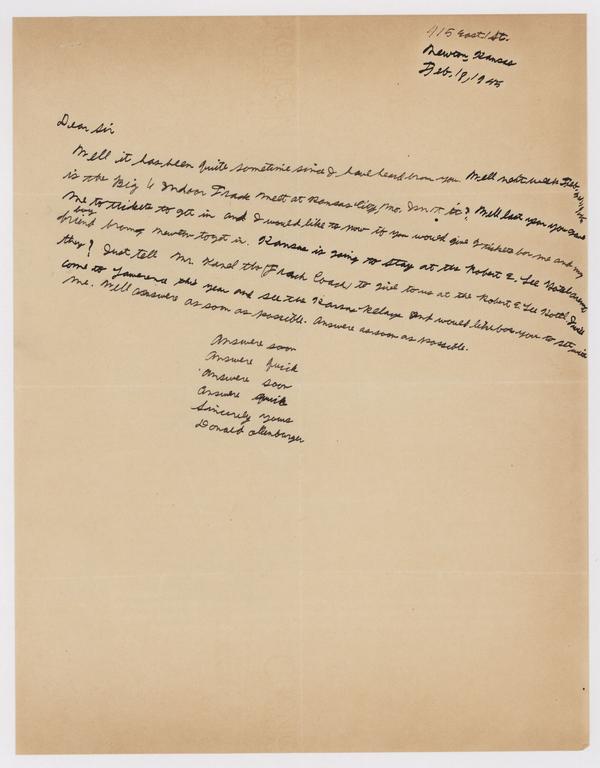 715 East 1 St.
Newton, Kansas
Feb. 18, 1945
Dear Sir
Well it has been quite sometime since I have heard from you. Well next week Feb.
is the Big 6 Indoor Track Meet at Kansas City, Mo. Isn't it? Well last year you gave
me to tickets to get in and I would like to now if you would give 2 tickets for me and my
boy
friend from Newton to get in. Kansas is going to stay at the Robert E. Lee Hotel
they? Just tell Mr. the Track Coach to give to us at the Robert E Lee Hotel.
come to Lawrence this year and see the Kansas Relays and would like for you to
me. Well answere as soon as possible. Answere as soon as possible.
Answere soon
Answere quick
Answere soon
Answere quick
Sincerely yours
Donald Ollenburger